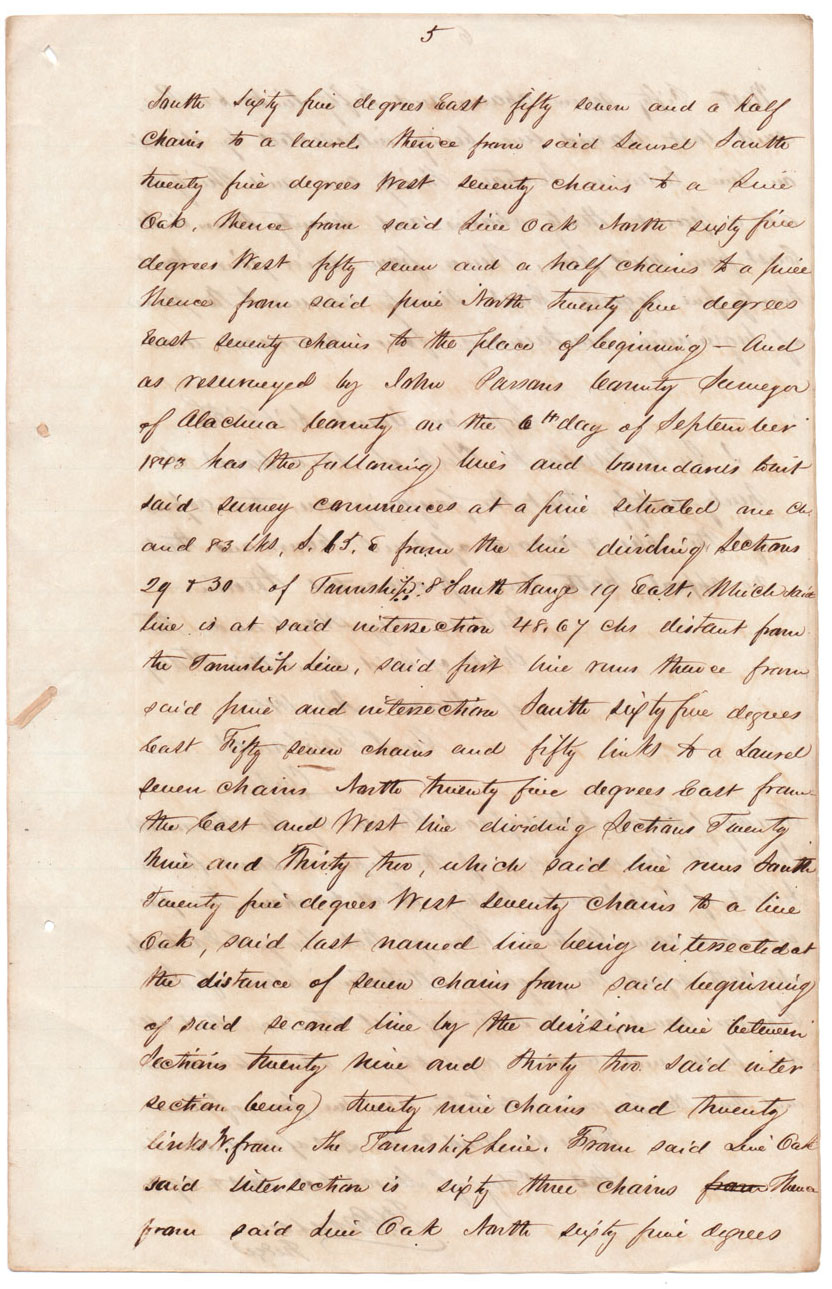 5
South sixty five degrees East fifty seven and a half
chains to a laurel. thence from said Laurel South
twenty five degrees West seventy chains to a Live
Oak, thence from said Live Oak North sixty five
degrees West fifty seven and a half chains to a pine
thence from said pine North twenty five degrees
East seventy chains to the place of beginning – And
as resurveyed by John Parsons County Surveyor
of Alachua County on the 6th day of September
1843 has the following lines and boundaries towit
said survey commences at a pine situated one ch
and 83 lks, S. 65. E from the line dividing Sections
29 & 30 of Township: 8 South Range 19 East. Which said
line is at said intersection 48.67 chs distant from
the Township Line, said first line runs thence from
said pine and intersection South sixty five degrees
East Fifty seven chains and fifty links to a Laurel
seven chains North twenty five degrees East from
the East and West line dividing Sections Twenty
Nine and Thirty two, which said line runs South
Twenty five degrees West seventy chains to a live
Oak, said last named line being intersected at
the distance of seven chains from said beginning
of said second line by the division line between
Sections twenty nine and thirty two said inter
section being twenty nine chains and twenty
links W. from the Township Line. From said Live Oak
said intersection is sixty three chains from thence
from said Live Oak North sixty five degrees